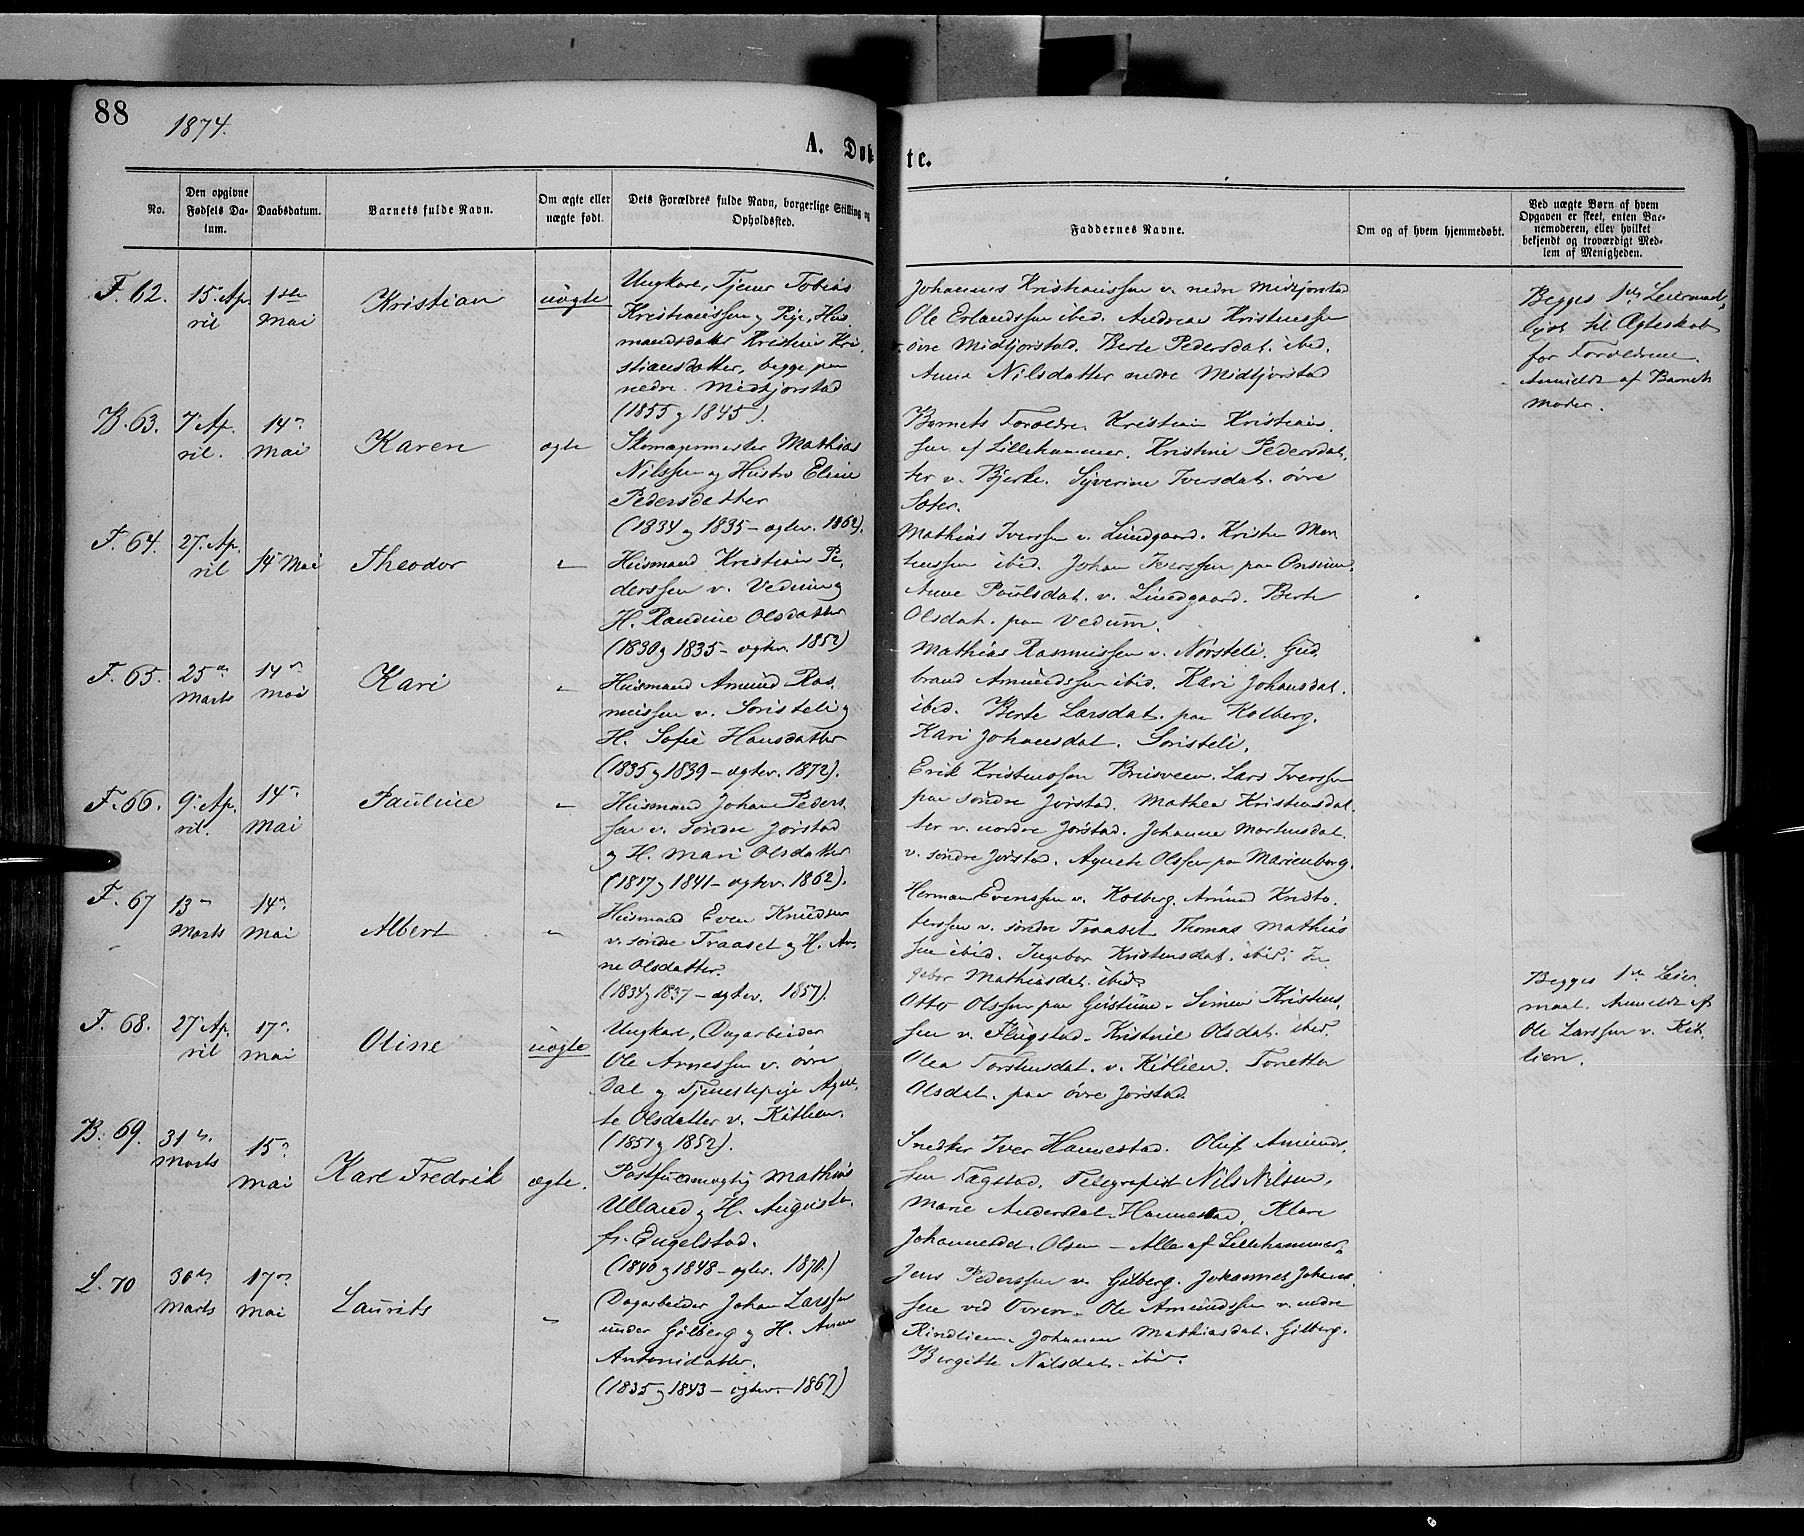 88
1874.
A. Døbte.
No.
Den opgivne Fødsels Datum.
Daabsdatum.
Barnets fulde Navn.
Om ægte eller uægte født.
Dets Forældres fulde Navn, borgerlige Stilling og Opholdssted.
Faddernes Navne.
Om og af hvem hjemmedøbt.
Ved uægte Børn af hvem Opgaven er skeet, enten Barnemoderen, eller hvilket bekjendt og troværdigt Medlem af Menigheden.
F. 62.
15. April
1ste Mai
Kristian
uægte
Ungkarl, Tjener Tobias
Kristianssen og Pige, Hus
mandsdatter Kristine Kri
stiansdatter, begge paa
nedre Midtjorstad
(1855 og 1845).
Johannes Kristianssen v. nedre Midtjorstad
Ole Erlandssen ibid. Andreas Kristenssen
øvre Midtjorstad. Berte Pedersdat. ibid.
Anne Nilsdatter nedre Midtjorstad
Begges 1ste Leiermaal,
til Ægteskab
for Forældrene.
Anmeldt af Barnets
moder.
B. 63.
7. April.
14. Mai
Karen
ægte
Skomagermester Mathias
Nilssen og Hustro Eline
Pedersdatter
(1834 og 1835 – ægtev. 1862).
Barnets Forældre. Kristian Kristian
sen af Lillehammer. Kristine Pedersdat
ter v. Bjerke. Syverine Iversdat. øvre
Sater.
F. 64.
27. April
14 Mai
Theodor
"
Husmand Kristian Pe
derssen v. Vedum og
H. Randine Olsdatter
(1830 og 1835 – ægtev. 1852)
Mathias Iverssen v. Lundgaard. Kristen Mor
tenssen ibid. Johan Iverssen paa Onsum.
Anne Poulsdat. v. Lundgaard. Berte
Olsdat. paa Vedum.
F. 65.
25de Marts
14. Mai
Kari
"
Husmand Amund Ras
mussen v. Sørsteli og
H. Sofie Hansdatter
(1835 og 1839 – ægtev. 1872).
Mathias Rasmussen v. Nørsteli. Gud
brand Amundssen ibid. Kari Johansdat.
ibid. Berte Larsdat. paa Kolberg.
Kari Johansdat. Sørsteli.
F. 66.
9. April.
14. Mai
Pauline
"
Husmand Johan Peders
sen v. søndre Jørstad
og H. Mari Olsdatter
(1817 og 1841 – ægtev. 1862).
Erik Kristenssen Brusveen. Lars Iverssen
paa søndre Jørstad. Mathea Kristensdat
ter v. nordre Jørstad. Johanne Mortensdat.
v. søndre Jørstad. Agnete Olssen paa Marienborg.
F. 67
13. Marts
14. Mai
Albert
"
Husmand Even Knudsen
v. søndre Traaset og H. An
ne Olsdatter.
(1834 og 1837 – ægtev. 1857).
Herman Evenssen v. Kolberg. Amund Kristo
ferssen v. søndre Traaset Thomas Mathias
sen ibid. Ingebor Kristensdat. ibid. In
gebor Mathiasdat. ibid.
F. 68.
27. April
17. Mai
Oline
uægte
Ungkarl, Dagarbeider
Ole Arnessen v. øvre
Dal og Tjenestepige Agne
te Olsdatter v. Kitlien.
(1851 og 1852).
Otto Olssen paa Gustum. Simen Kristens
sen v. Flugstad. Kristine Olsdat. ibid.
Olea Torstensdat. v. Kitlien. Tonetta
Olsdat. paa øvre Jørstad.
Begges 1ste Leier
maal. Anmeldt af
Ole Larssen v. Kit
lien.
B. 69.
31te Marts
15. Mai
Karl Fredrik
ægte.
Postfuldmægtig Mathias
Ulland og H. Augusta
f. Engelstad.
(1840 og 1848 – ægtev. 1870.)
Snedker Iver Hannestad. Oluf Amunds
sen Fagstad. Telegrafist Nils Nilsen,
Marie Andersdat. Hannestad. Klara
Johannesdat. Olsen – Alle af Lillehammer.
L. 70
30te Marts
17. Mai
Laurits
"
Dagarbeider Johan Larssen
under Gilberg og H. Anne
Antonidatter.
(1835 og 1843 – ægtev. 1867)
Jens Pederssen v. Gilberg. Johannes Johans
sen ved Vorem. Ole Amundssen v. nedre
Rindlien. Johanne Mathiasdat. Gilberg.
Bergitte Nilsdat. ibid.